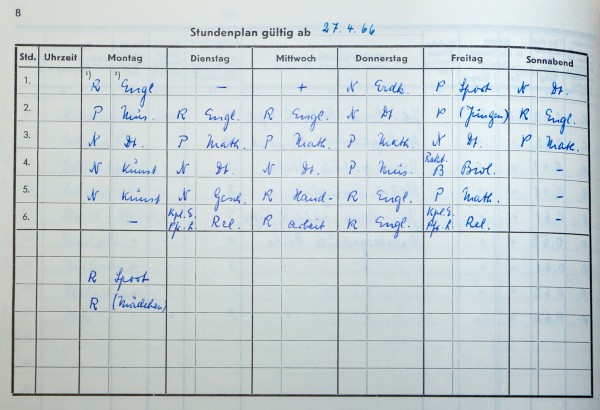 8
Stundenplan gültig ab 27.4.66
Std. Uhrzeit Montag Dienstag Mittwoch Donnerstag Freitag Sonnabend
1. ¹) R ²) Engl. – + N Erdk. P Sport N Dt.
2. P Mus. R Engl. R Engl. N Dt. P (Jungen) R Engl.
3. N Dt. P Math. P Math. P Math. N Dt. P Math.
4. N Kunst N Dt. N Dt. P Mus. Rekt. B Biol. –
5. N Kunst N Gesch. R Hand- R Engl. P Math. –
6. – Kpl. E. Pfr. L. Rel. R arbeit R Engl. Kpl. E. Pfr. L. Rel. –
R Sport
R (Mädchen)